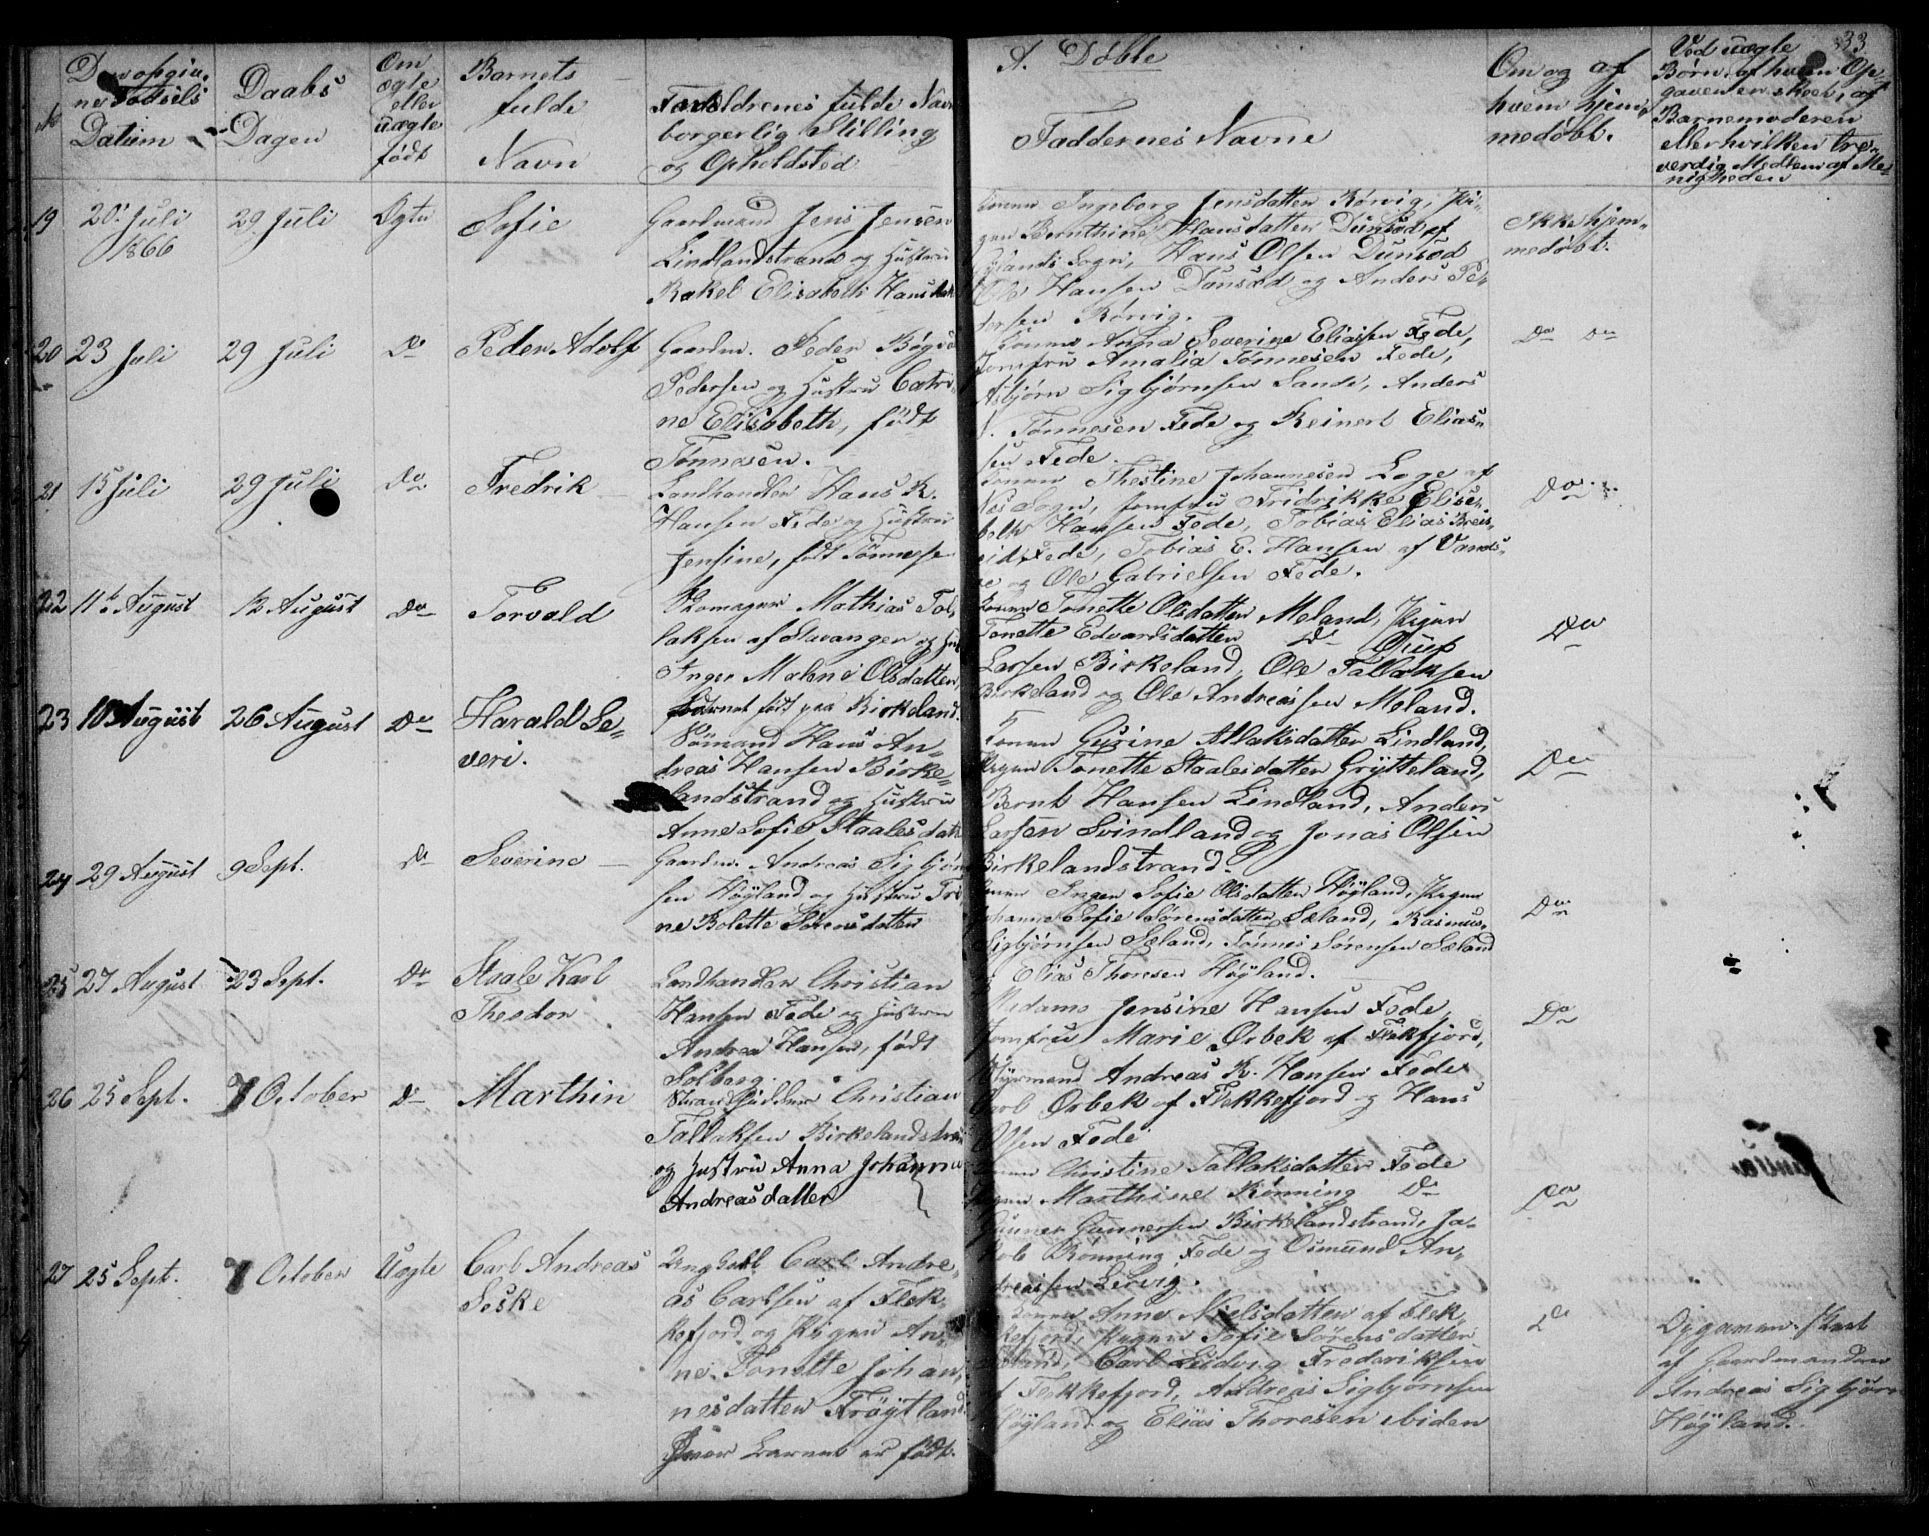 33.
A. Døbte
No
Den opgivne Fødsels Datum
Daabs Dagen
Om ægte eller uægte født
Barnets fulde Navn
Forældrenes fulde Navn borgerlig Stilling og Opholdsted
Faddernes Navne
Om og af hvem hjemmedøbt.
Ved uægte Børn, af hvem Opgaven er skeet, af Barnemoderen eller hvilken troverdig Medlem af Menigheden
19
20de Juli 1866
29 Juli
Ægte
Sofie
Gaardmand Jens Jensen
Lindlandstrand og Hustru
Rakel Elisabeth Hansdatt
Ingeborg Jensdatter Rørvig, Pi-
gen Bernthine Hansdatter Dunsæd af
Sogn, Hans Olsen Dunsæd
Ole Hansen Dunsæd og Anders Pe-
dersen Rørvig.
Ikke hjem-
medøbt.
20
23 Juli
29 Juli
Do
Peder Adolf
Gaardm. Peder Bøgv
Pedersen og Hustru Catri-
ne Elisabeth, født
Tønnesen.
Konen Anna Severine Eliassen Fede,
Jomfru Amalia Tønnesen Fede,
Asbjørn Sigbjørnsen Sande, Anders
Tønnesen Fede og Reinert Elias-
sen Fede.
Do Do
21
15 Juli
29 Juli
Do
Fredrik
Landhandler Hans R.
Hansen Fede og Hustru
Jensine, født Tønnesen
Konen Thestine Johannesen Loge af
Nes Sogn, Jomfru Fridrikke Elisa-
beth Hansen Fede, Tobias Elias Breis-
eid Fede, Tobias E. Hansen af Vands-
og Ole Gabrielsen Fede.
Do
22
11te August
12 August
Do
Torvald
Skomager Mathias Tal-
laksen af Stavanger og Hu
Inger Malene Olsdatter,
Barnet født paa Birkeland.
Konen Tonette Olsdatter Meland, Pigen
Tonette Edvardsdatter Do
Larsen Birkeland, Ole Tallaksen
Birkeland og Ole Andreassen Meland.
Do
23
10 August
26 August
Do
Harald Se-
veri.
Sømand Hans An-
dreas Hansen Birke-
landstrand og Hustru
Anne Sofie Staalesdatt
Konen Gurine Atlaksdatter Lindland,
Pigen Tonette Staalesdatter Grytteland,
Bernt Hansen Lindland, Anders
Larsen Svindland og Jonas Olsen
Birkelandstrand.
Do
24
29 August
9 Sept.
Do
Severine
Gaardm. Andreas Sigbjørn
sen Høyland og Hustru Tri-
ne Bolette Sørensdatter
Konen Inger Sofie Olsdatter Høyland, Pigen
Johanne Sofie Sørensdatter Sæland, Rasmus
Sigbjørnsen Sæland, Tønnes Sørensen Sæland
og Elias Thoresen Høyland.
Do
25
27 August
23 Sept.
Do
Staale Karl
Theodor
Landhandler Christian
Hansen Fede og Hustru
Andrea Hansen, født
Solberg.
Madame Jensine Hansen Fede,
Jomfru Marie Ørbek af Flekkefjord,
Styrmand Andreas R. Hansen Fede
Carl Ørbek af Flekkefjord og Hans
Olsen Fede
Do
26
25 Sept.
7 October
Do
Marthin
Strandsidder Christian
Tallaksen Birkelandstran
og Hustru Anna Johanna
Andreasdatter
Konen Christine Tallaksdatter Fede
Pigen Marthine Rønning Do
Gunner Gunnersen Birkelandstrand, Ja-
kob Rønning Fede og Osmund An-
dreassen Lervig.
Do
27
25 Sept.
7 October
Uægte
Carl Andreas
Soske
Ungkarl Carl Andre-
as Carlsen af Flek-
kefjord og Pigen An-
ne Tonette Johan-
nesdatter Frøytland
hvor Barnet er født.
Konen Anne Nielsdatter af Flek-
kefjord, Pigen Sofie Sørensdatter
Carl Ludvig Frederiksen
af Flekkefjord, Andreas Sigbjørnsen
Høyland og Elias Thoresen ibiden
Do
Opgaven skeet
af Gaardmanden
Andreas Sigbjørn
Høyland.